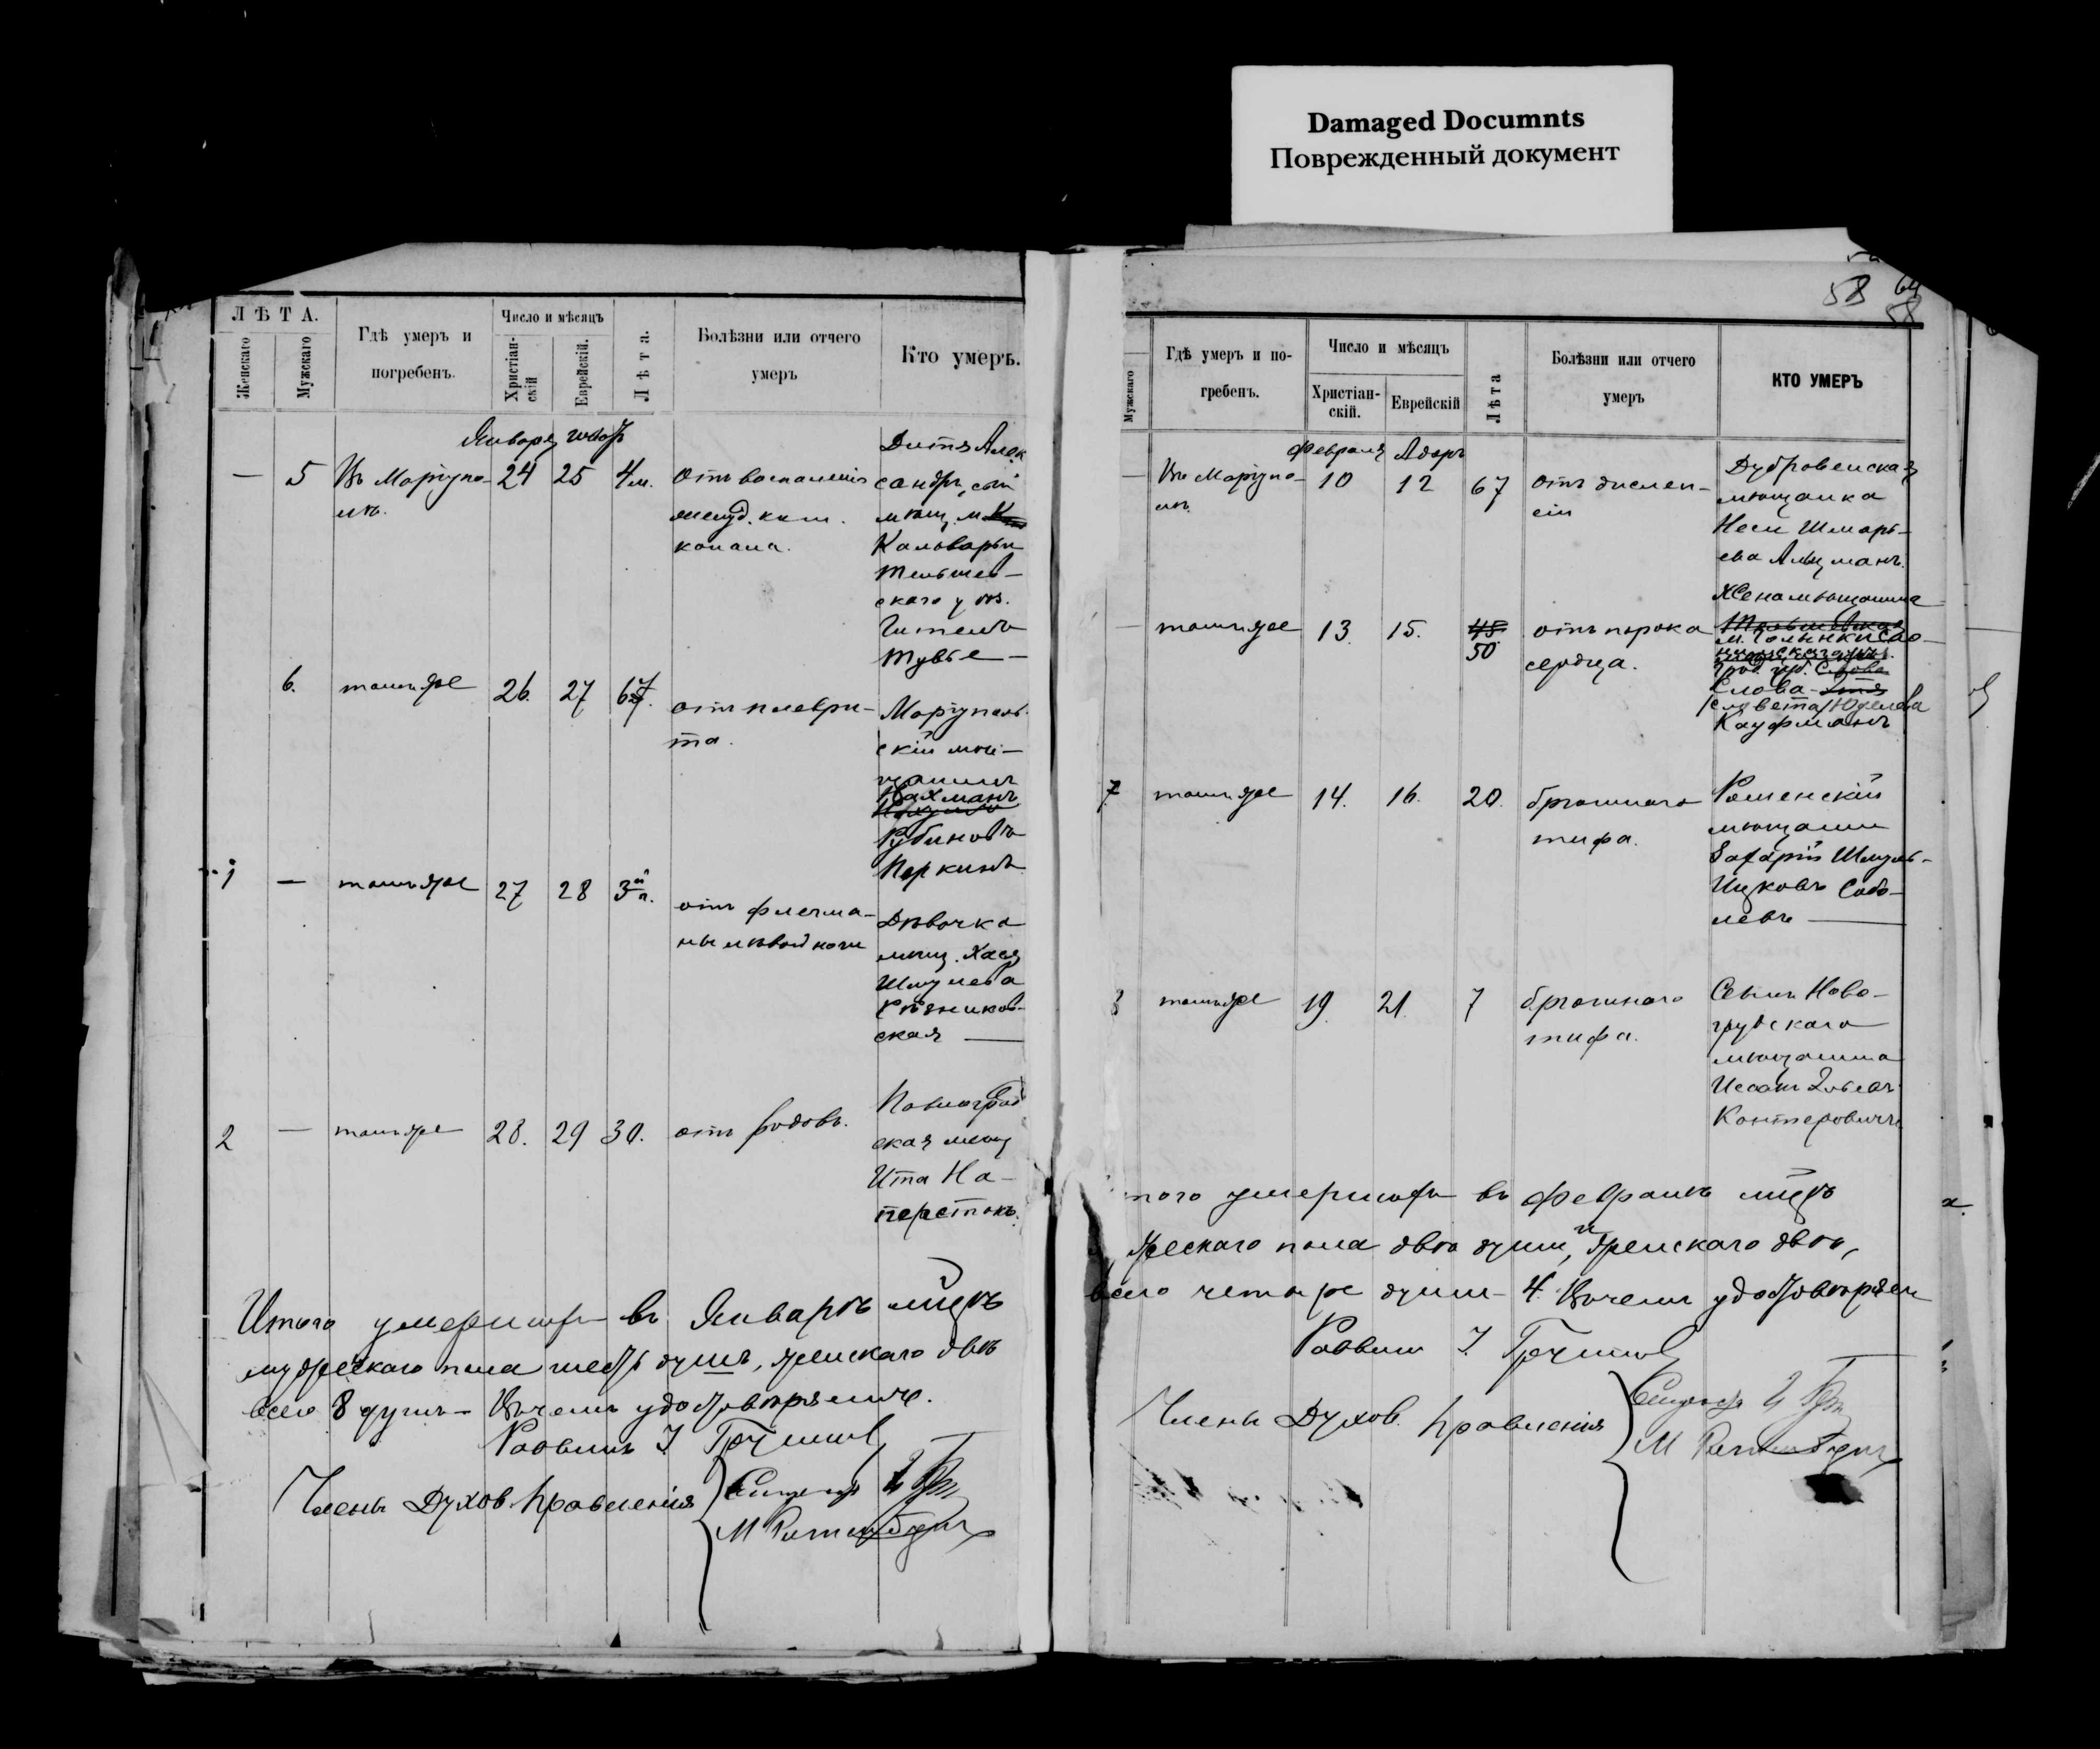 Damaged Documnts
Поврежденный документ
ЛѢТА.
Женскаго
Мужскаго
Гдѣ умеръ и
погребенъ.
Число и мѣсяцъ
Христіан-
скій
Еврейскій.
Лѣта.
Болѣзни или отчего
умеръ
Кто умеръ.
Января
— 5 Въ Маріупо- 24 25 4 м. отъ воспаленія
лѣ.
канала.
Дитя Алек
сандръ, сын
мѣщ. м.
Кальваріи
Тельшев-
скаго у ѣз.
Гителъ
Тувье —
6. тамъ же 26. 27 67. отъ плеври-
та.
Маріуполь
скій мѣ-
щанинъ
Нахманъ
Рубиновъ
Перкинъ
1 — тамъ же 27 28 3 отъ флегмо-
ны лѣвой ноги
Дѣвочка
мѣщ. Хася
Шмулева
Рѣзников-
ская —
2 — тамъ же 28. 29 30. отъ родовъ.
Павлоград
ская мѣщ
Ита На-
перстокъ.
Итого умершихъ въ Январѣ м-цѣ
мужескаго пола шесть душъ, женскаго двѣ
всего 8 душъ — Въ чемъ удостовѣряемъ.
Раввинъ
Члены Духов. Правленія
58
Мужскаго
Гдѣ умеръ и по-
гребенъ.
Число и мѣсяцъ
Христіан-
скій.
Еврейскій
Лѣта
Болѣзни или отчего
умеръ
КТО УМЕРЪ
Февраля Адаръ
— Въ Маріупо- 10 12 67 отъ диспеп-
лѣ. сіи
Дубровенская
мѣщанка
Неси Шмарь-
ева Альцманъ.
— тамъ же 13. 15. 45. отъ порока
50 сердца.
Жена мѣщанина
м. Голынки Сло-
Слова
Юделева
Кауфманъ
7 тамъ же 14. 16. 20. брюшнаго
тифа.
Роменскій
мѣщанин
Захарій Шмуль-
Ицковъ Собо-
левъ —
8 тамъ же 19. 21. 7 брюшнаго
тифа.
Сынъ Ново-
грудскаго
мѣщанина
Исаакъ
Контеровичъ
того умершихъ въ Февралѣ м-цѣ
жескаго пола двѣ души, и женскаго двѣ,
всего четыре души — 4. Въ чемъ удостовѣряем
Раввинъ
Члены Духов. Правленія